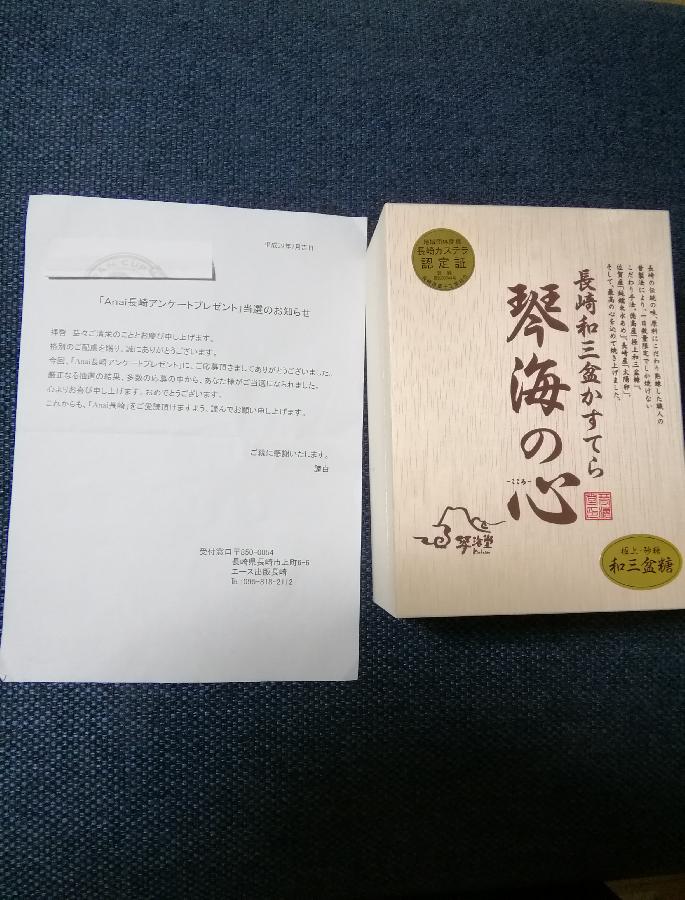 「Anai長崎アンケートプレゼント」当選のお知らせ
拝啓 益々ご清栄のこととお慶び申し上げます。
格別のご配慮を賜り、誠にありがとうございます。
今回、「Anai長崎アンケートプレゼント」に、ご応募頂きましてありがとうございました。
厳正なる抽選の結果、多数の応募の中から、あなた様がご当選になられました。
心よりお喜び申し上げます。おめでとうございます。
これからも、「Anai長崎」をご愛読頂けますよう、謹んでお願い申し上げます。
ご縁に感謝いたします。
謹白
受付窓口〒850-0054
長崎県長崎市上町6-6
エース出版長崎
℡:095-818-2112
長崎カステラ
認定証
長崎の伝統の味、原料にこだわり熟練した職人の
昔製法により、一日数量限定でしか焼けない
こだわり手法。徳島産「極上和三盆糖」、
佐賀産「純糯米水あめ」、長崎産「太陽卵」。
そして、最高の心を込めて焼き上げました。
長崎和三盆かすてら
琴海の心
-こころ-
琴海堂
極上・砂糖
和三盆糖